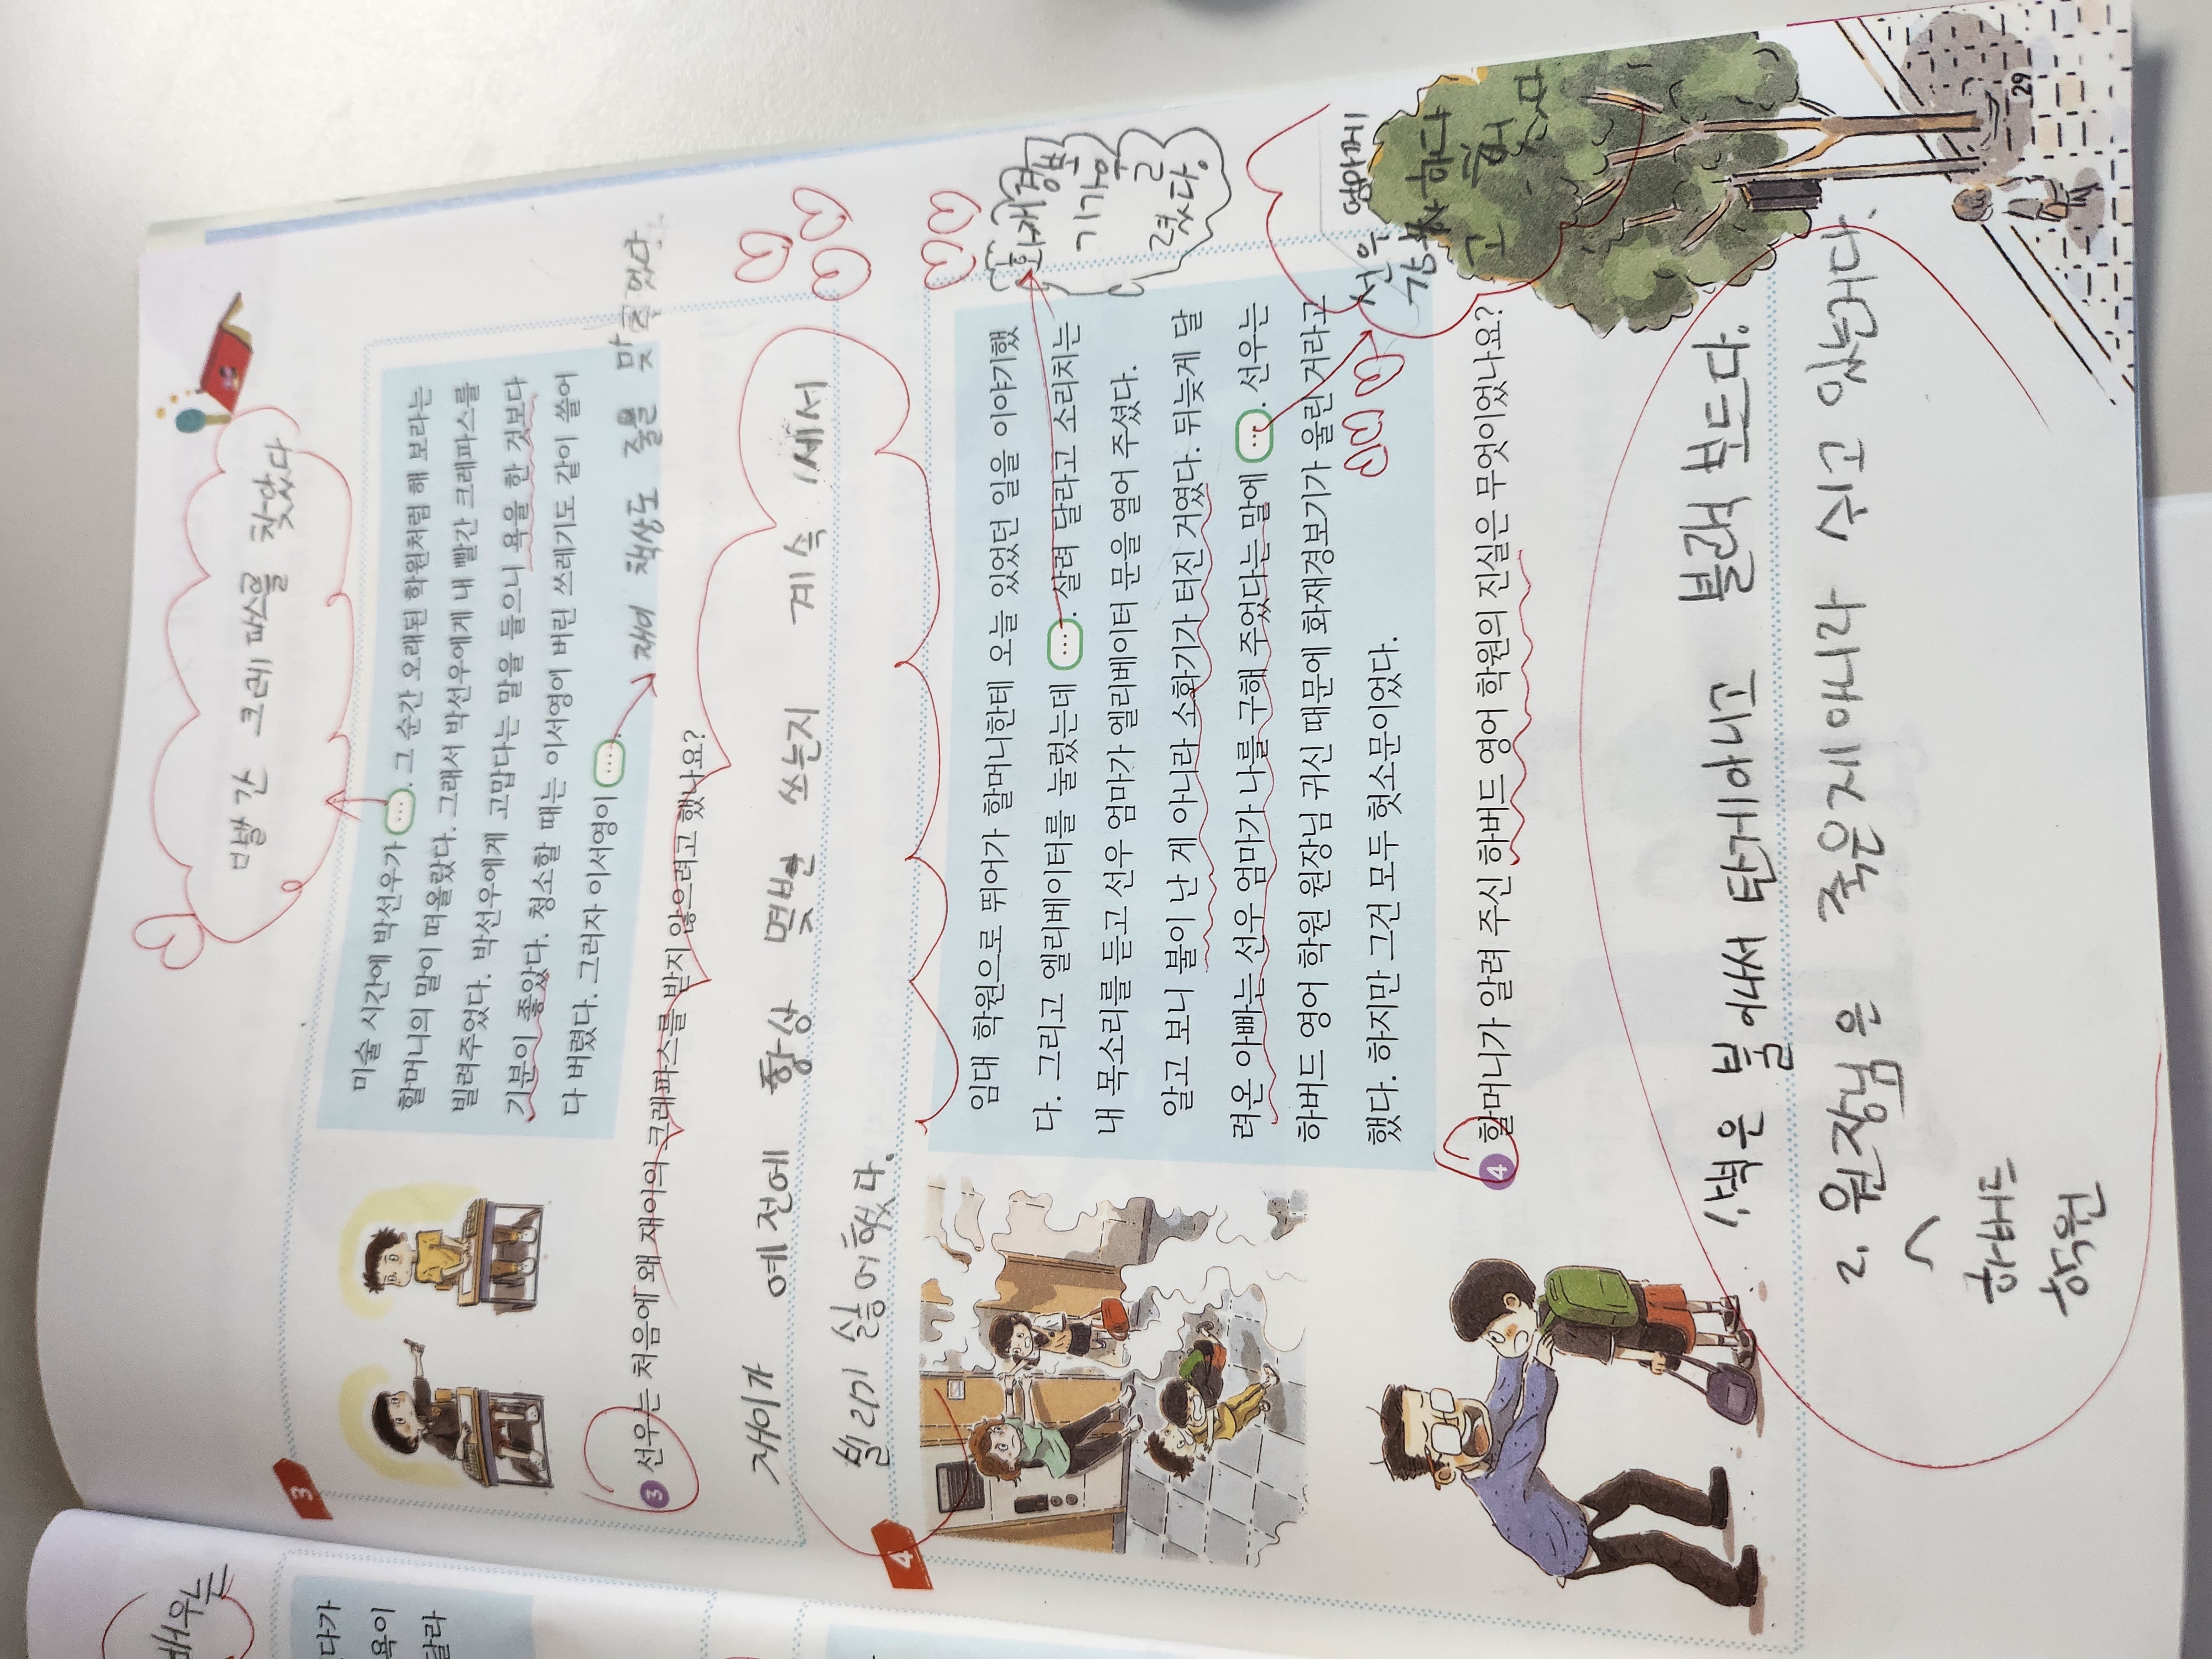 빨간 크레파스를 찾았다
3
미술 시간에 박선우가 .... 그 순간 오래된 학원처럼 해 보라는
할머니의 말이 떠올랐다. 그래서 박선우에게 내 빨간 크레파스를
빌려주었다. 박선우에게 고맙다는 말을 들으니 욕을 한 것보다
기분이 좋았다. 청소할 때는 이서영에 버린 쓰레기도 같이 쓸어
다 버렸다. 그러자 이서영이 ....
재이 책상도 줄을 맞추었다.
3 선우는 처음에 왜 재이의 크레파스를 받지 않으려고 했나요?
재이가 예전에 항상 몇번 쓰는지 계속 세서
빌리기 싫어했다.
4
임대 학원으로 뛰어가 할머니한테 오늘 있었던 일을 이야기했
다. 그리고 엘리베이터를 눌렀는데 .... 살려 달라고 소리치는
내 목소리를 듣고 선우 엄마가 엘리베이터 문을 열어 주셨다.
알고 보니 불이 난 게 아니라 소화기가 터진 거였다. 뒤늦게 달
려온 아빠는 선우 엄마가 나를 구해 주었다는 말에 .... 선우는
하버드 영어 학원 원장님 귀신 때문에 화재경보기가 울린 거라고
했다. 하지만 그건 모두 헛소문이었다.
화재경보
기가 울
렸다.
선우 엄마께
감사하다
고 했
다
4 할머니가 알려 주신 하버드 영어 학원의 진실은 무엇이었나요?
1. 벽은 불에나서 탄게아니고 블랙 보드다.
2. 원장님은 죽은게아니라 쉬고 있는거다.
하버드
학원
29
배우는
다가
욕이
달라